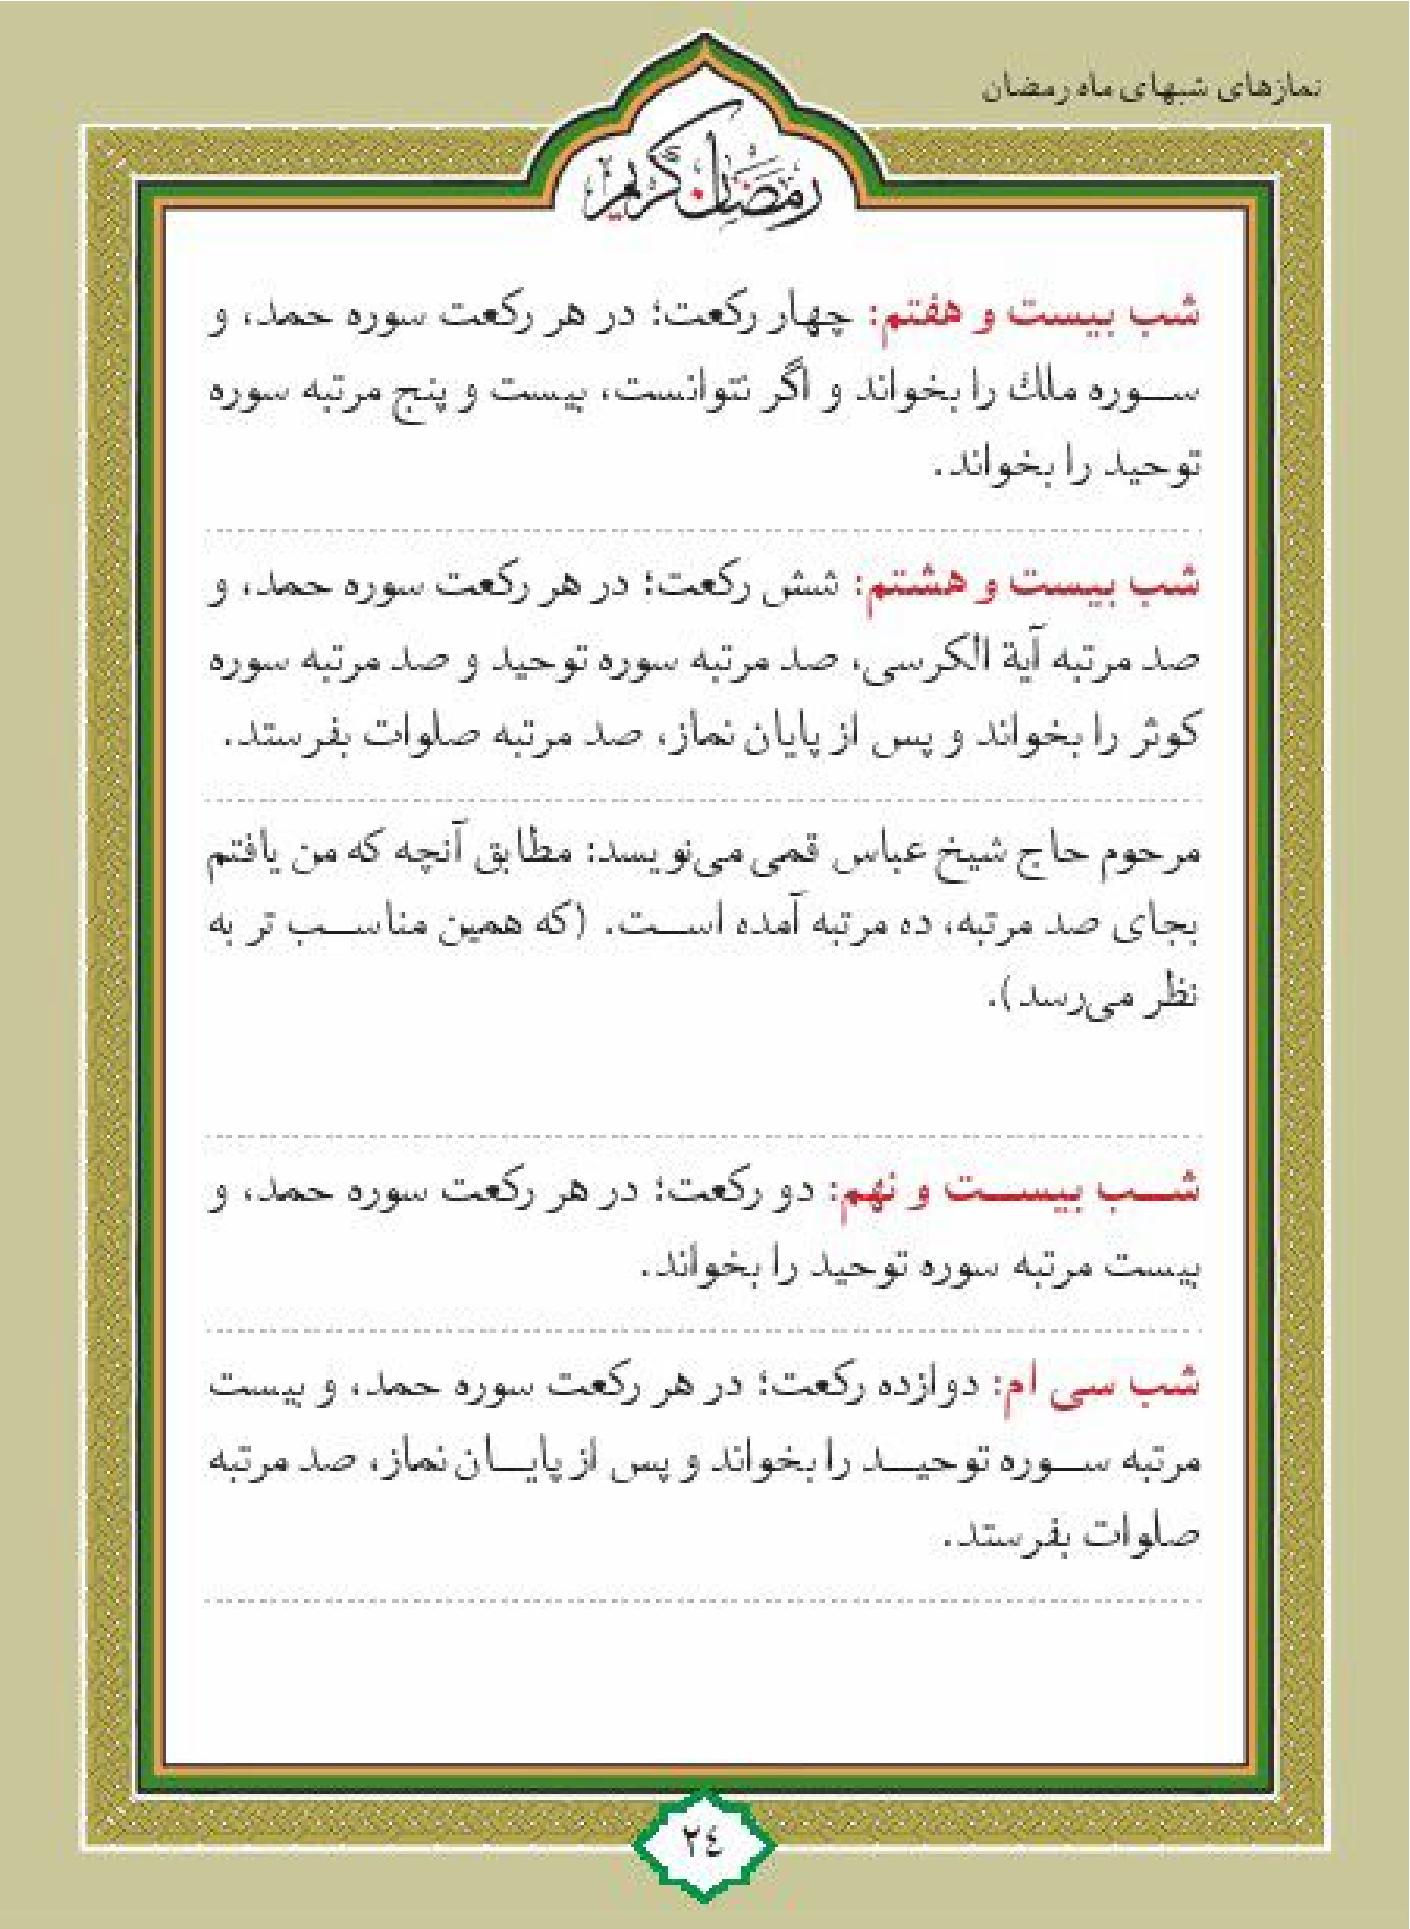 نمازهای شبهای ماه رمضان
رمضان کریم
شب بیست و هفتم: چهار رکعت؛ در هر رکعت سوره حمد، و
سوره ملك را بخواند و اگر نتوانست، بیست و پنج مرتبه سوره
توحید را بخواند.
شب بیست و هشتم: شش رکعت؛ در هر رکعت سوره حمد، و
صد مرتبه آیة الکرسی، صد مرتبه سوره توحید و صد مرتبه سوره
کوثر را بخواند و پس از پایان نماز، صد مرتبه صلوات بفرستد.
مرحوم حاج شیخ عباس قمی می‌نویسد: مطابق آنچه که من یافتم
بجای صد مرتبه، ده مرتبه آمده است. (که همین مناسب تر به
نظر می‌رسد).
شب بیست و نهم: دو رکعت؛ در هر رکعت سوره حمد، و
بیست مرتبه سوره توحید را بخواند.
شب سی ام: دوازده رکعت؛ در هر رکعت سوره حمد، و بیست
مرتبه سوره توحید را بخواند و پس از پایان نماز، صد مرتبه
صلوات بفرستد.
٢٤